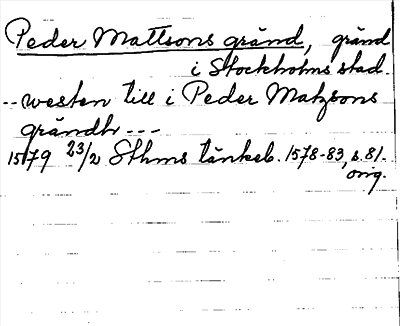 Peder Mattsons gränd, gränd
i Stockholms stad.
-- westen till i Peder Matzsons
grändh ---
1579 23/2 Sthms tänkeb. 1578-83, s. 81.
orig.